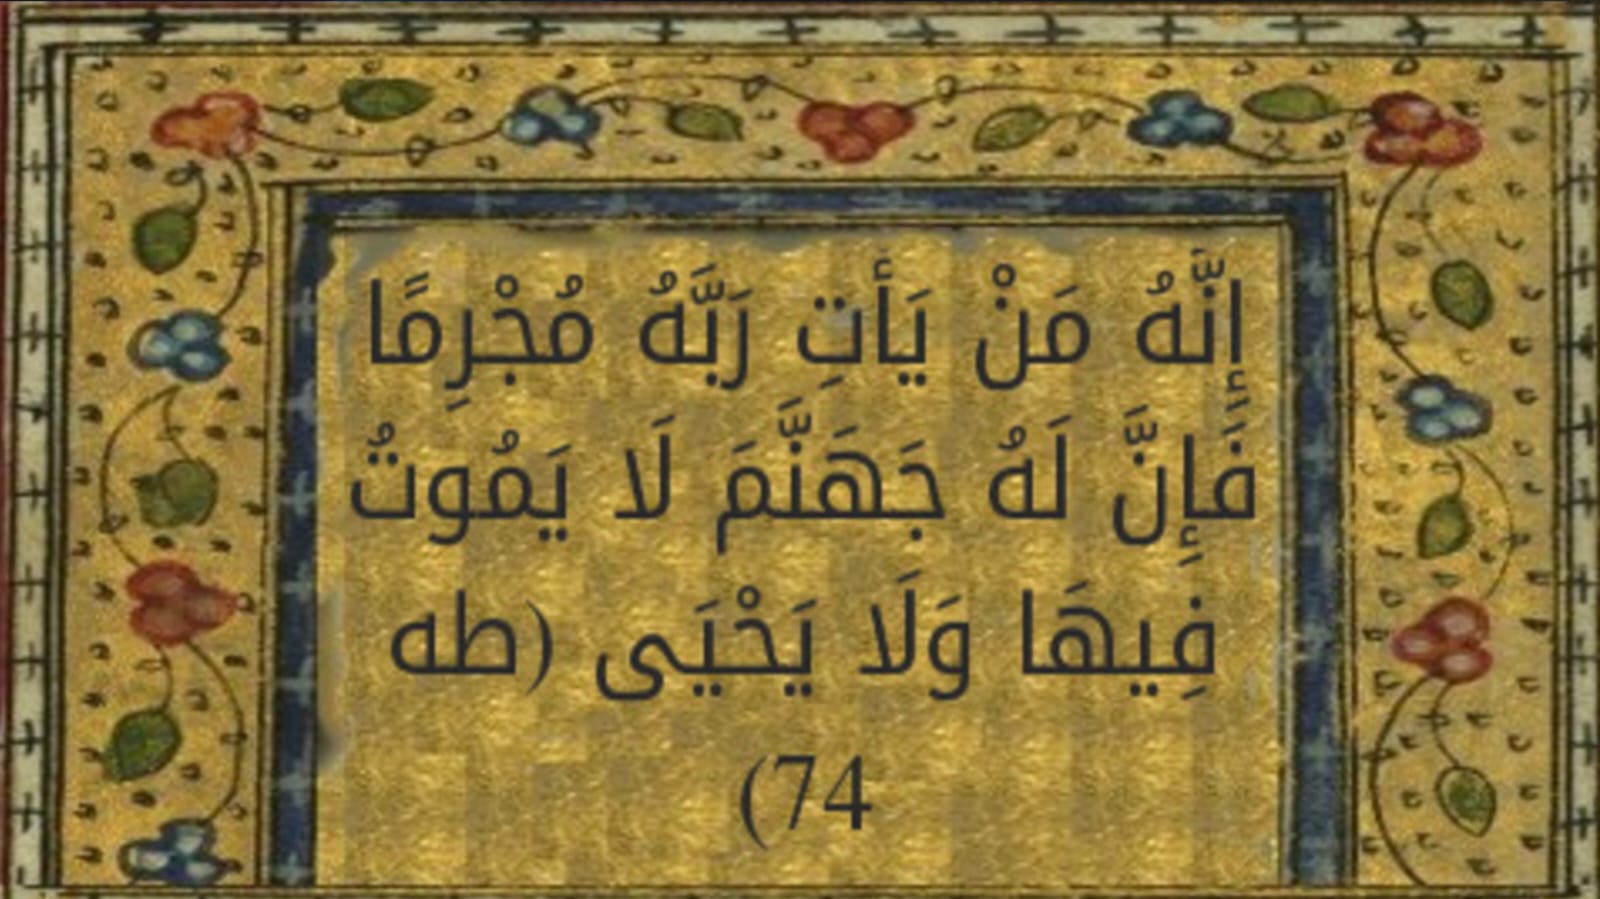 إِنَّهُ مَنْ يَأْتِ رَبَّهُ مُجْرِمًا
فَإِنَّ لَهُ جَهَنَّمَ لَا يَمُوتُ
فِيهَا وَلَا يَحْيَى (طه
74)